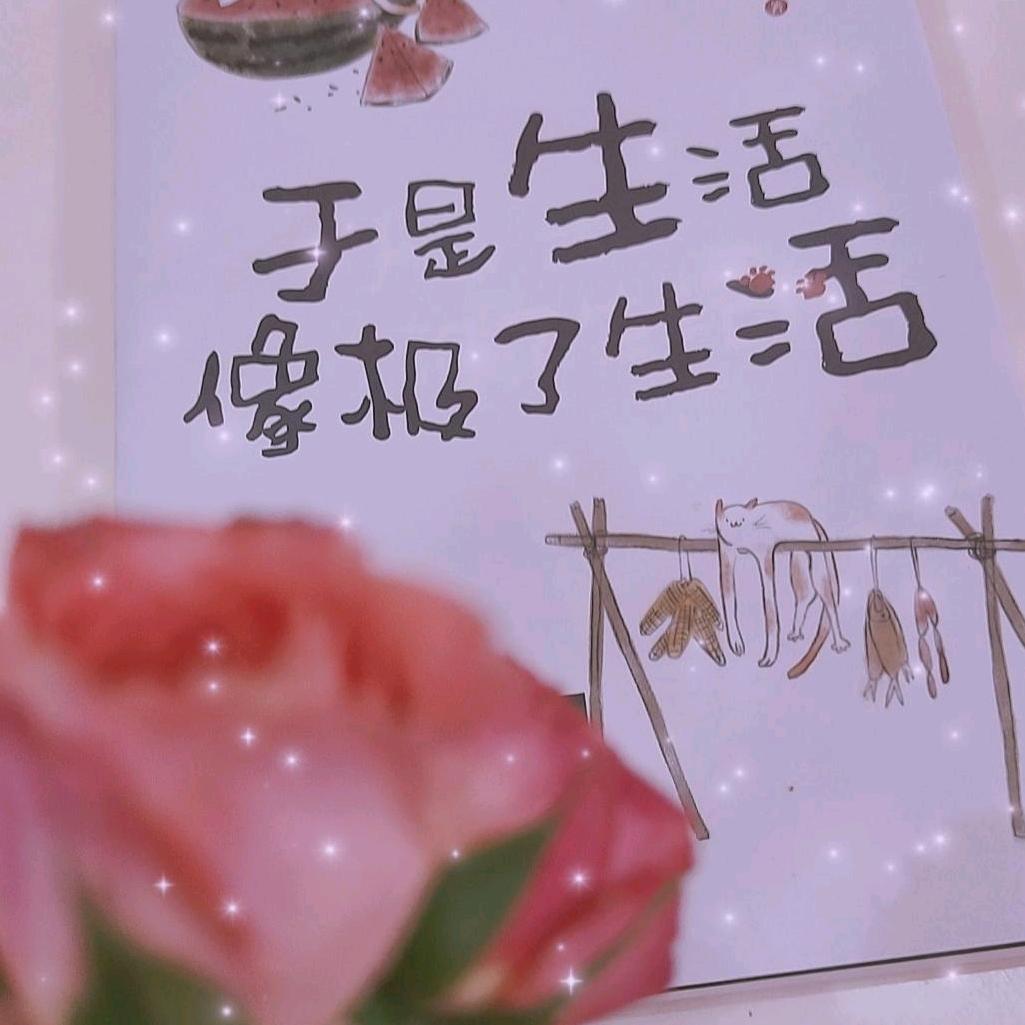 于是生活
像极了生活